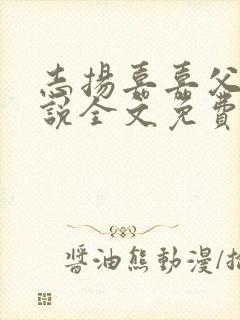 志揚嘉嘉父
說全文免費
醬油熊動漫/插